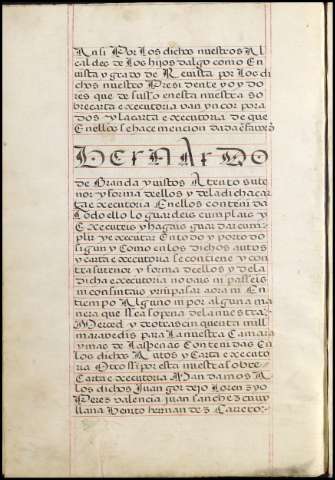 Ansi Por Los dichos nuestros Al
caldes de Los hijos dalgo como En
vista y grado de Revista por Los di
chos nuestro Presidente y oydo
res que de suso en esta nuestra so
brecarta executoria van yncorpora
dos y la carta executoria de que
En ellos se hace mencion dada
HERNANDO
de Branda y vistos Atento su te
nor y forma de ellos y de la dicha car
ta executoria En ellos contenida
todo ello lo guardeis cumplais y
Executeis y hagais guardar cum
plir y executar En todo y por todo
sigun y Como en los dichos autos
y carta executoria se contiene y con
tra su tenor y forma de ellos y de la
dicha executoria no vais ni paseis
ni consintais yr ni pasar aora ni En
tiempo Alguno ni por alguna ma
nera que sea so pena de la nuestra
Merced y de otras cinquenta mill
maravedis para La nuestra Camara
y mas de Las penas Contenidas En
Los dichos Autos y Carta executo
ria Otro si por esta nuestra sobre
Carta executoria Mandamos A
Los dichos Juan gotejo Lorenzo
Perez valencia juan sanchez
llana benito hernandez Carreto